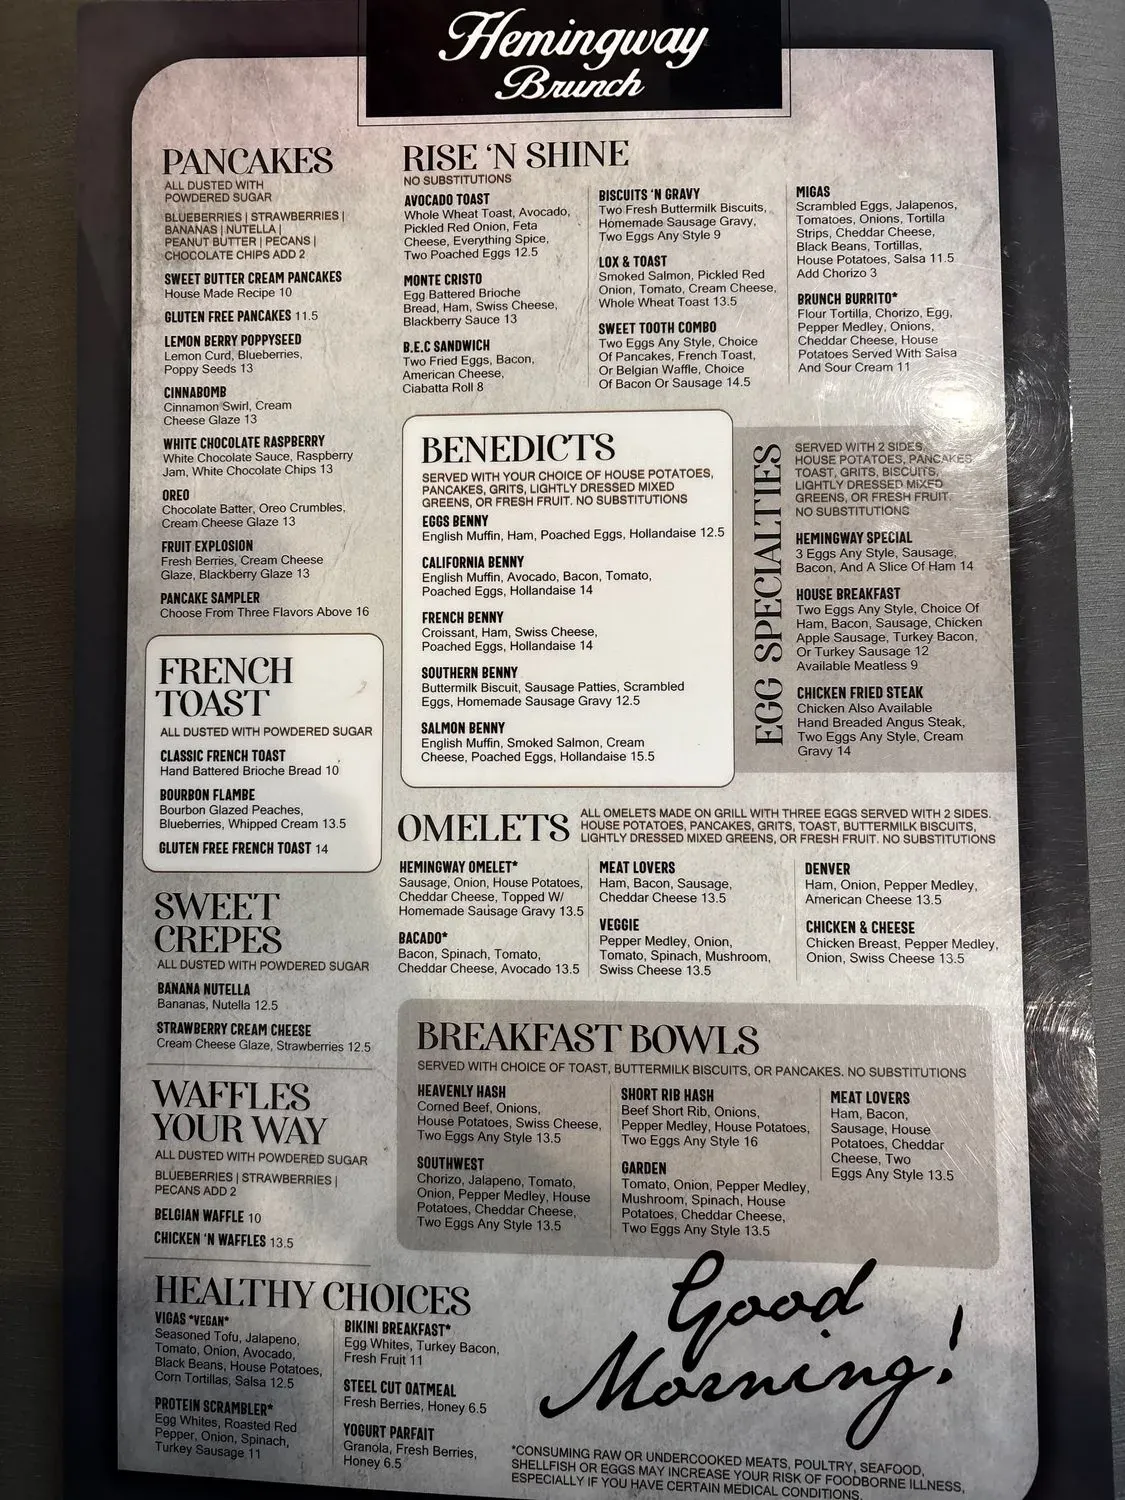 Hemingway
Brunch
PANCAKES
ALL DUSTED WITH
POWDERED SUGAR
BLUEBERRIES | STRAWBERRIES |
BANANAS | NUTELLA |
PEANUT BUTTER | PECANS |
CHOCOLATE CHIPS ADD 2
SWEET BUTTER CREAM PANCAKES
House Made Recipe 10
GLUTEN FREE PANCAKES 11.5
LEMON BERRY POPPYSEED
Lemon Curd, Blueberries,
Poppy Seeds 13
CINNABOMB
Cinnamon Swirl, Cream
Cheese Glaze 13
WHITE CHOCOLATE RASPBERRY
White Chocolate Sauce, Raspberry
Jam, White Chocolate Chips 13
OREO
Chocolate Batter, Oreo Crumbles,
Cream Cheese Glaze 13
FRUIT EXPLOSION
Fresh Berries, Cream Cheese
Glaze, Blackberry Glaze 13
PANCAKE SAMPLER
Choose From Three Flavors Above 16
FRENCH
TOAST
ALL DUSTED WITH POWDERED SUGAR
CLASSIC FRENCH TOAST
Hand Battered Brioche Bread 10
BOURBON FLAMBE
Bourbon Glazed Peaches,
Blueberries, Whipped Cream 13.5
GLUTEN FREE FRENCH TOAST 14
SWEET
CREPES
ALL DUSTED WITH POWDERED SUGAR
BANANA NUTELLA
Bananas, Nutella 12.5
STRAWBERRY CREAM CHEESE
Cream Cheese Glaze, Strawberries 12.5
WAFFLES
YOUR WAY
ALL DUSTED WITH POWDERED SUGAR
BLUEBERRIES | STRAWBERRIES |
PECANS ADD 2
BELGIAN WAFFLE 10
CHICKEN 'N WAFFLES 13.5
RISE 'N SHINE
NO SUBSTITUTIONS
AVOCADO TOAST
Whole Wheat Toast, Avocado,
Pickled Red Onion, Feta
Cheese, Everything Spice,
Two Poached Eggs 12.5
MONTE CRISTO
Egg Battered Brioche
Bread, Ham, Swiss Cheese,
Blackberry Sauce 13
B.E.C SANDWICH
Two Fried Eggs, Bacon,
American Cheese,
Ciabatta Roll 8
BISCUITS 'N GRAVY
Two Fresh Buttermilk Biscuits,
Homemade Sausage Gravy,
Two Eggs Any Style 9
LOX & TOAST
Smoked Salmon, Pickled Red
Onion, Tomato, Cream Cheese,
Whole Wheat Toast 13.5
SWEET TOOTH COMBO
Two Eggs Any Style, Choice
Of Pancakes, French Toast,
Or Belgian Waffle, Choice
Of Bacon Or Sausage 14.5
MIGAS
Scrambled Eggs, Jalapenos,
Tomatoes, Onions, Tortilla
Strips, Cheddar Cheese,
Black Beans, Tortillas,
House Potatoes, Salsa 11.5
Add Chorizo 3
BRUNCH BURRITO*
Flour Tortilla, Chorizo, Egg,
Pepper Medley, Onions,
Cheddar Cheese, House
Potatoes Served With Salsa
And Sour Cream 11
BENEDICTS
SERVED WITH YOUR CHOICE OF HOUSE POTATOES,
PANCAKES, GRITS, LIGHTLY DRESSED MIXED
GREENS, OR FRESH FRUIT. NO SUBSTITUTIONS
EGGS BENNY
English Muffin, Ham, Poached Eggs, Hollandaise 12.5
CALIFORNIA BENNY
English Muffin, Avocado, Bacon, Tomato,
Poached Eggs, Hollandaise 14
FRENCH BENNY
Croissant, Ham, Swiss Cheese,
Poached Eggs, Hollandaise 14
SOUTHERN BENNY
Buttermilk Biscuit, Sausage Patties, Scrambled
Eggs, Homemade Sausage Gravy 12.5
SALMON BENNY
English Muffin, Smoked Salmon, Cream
Cheese, Poached Eggs, Hollandaise 15.5
EGG SPECIALTIES
SERVED WITH 2 SIDES.
HOUSE POTATOES, PANCAKES,
TOAST, GRITS, BISCUITS,
LIGHTLY DRESSED MIXED
GREENS, OR FRESH FRUIT.
NO SUBSTITUTIONS
HEMINGWAY SPECIAL
3 Eggs Any Style, Sausage,
Bacon, And A Slice Of Ham 14
HOUSE BREAKFAST
Two Eggs Any Style, Choice Of
Ham, Bacon, Sausage, Chicken
Apple Sausage, Turkey Bacon,
Or Turkey Sausage 12
Available Meatless 9
CHICKEN FRIED STEAK
Chicken Also Available
Hand Breaded Angus Steak,
Two Eggs Any Style, Cream
Gravy 14
OMELETS
ALL OMELETS MADE ON GRILL WITH THREE EGGS SERVED WITH 2 SIDES.
HOUSE POTATOES, PANCAKES, GRITS, TOAST, BUTTERMILK BISCUITS,
LIGHTLY DRESSED MIXED GREENS, OR FRESH FRUIT. NO SUBSTITUTIONS
HEMINGWAY OMELET*
Sausage, Onion, House Potatoes,
Cheddar Cheese, Topped W/
Homemade Sausage Gravy 13.5
BACADO*
Bacon, Spinach, Tomato,
Cheddar Cheese, Avocado 13.5
MEAT LOVERS
Ham, Bacon, Sausage,
Cheddar Cheese 13.5
VEGGIE
Pepper Medley, Onion,
Tomato, Spinach, Mushroom,
Swiss Cheese 13.5
DENVER
Ham, Onion, Pepper Medley,
American Cheese 13.5
CHICKEN & CHEESE
Chicken Breast, Pepper Medley,
Onion, Swiss Cheese 13.5
BREAKFAST BOWLS
SERVED WITH CHOICE OF TOAST, BUTTERMILK BISCUITS, OR PANCAKES. NO SUBSTITUTIONS
HEAVENLY HASH
Corned Beef, Onions,
House Potatoes, Swiss Cheese,
Two Eggs Any Style 13.5
SOUTHWEST
Chorizo, Jalapeno, Tomato,
Onion, Pepper Medley, House
Potatoes, Cheddar Cheese,
Two Eggs Any Style 13.5
SHORT RIB HASH
Beef Short Rib, Onions,
Pepper Medley, House Potatoes,
Two Eggs Any Style 16
GARDEN
Tomato, Onion, Pepper Medley,
Mushroom, Spinach, House
Potatoes, Cheddar Cheese,
Two Eggs Any Style 13.5
MEAT LOVERS
Ham, Bacon,
Sausage, House
Potatoes, Cheddar
Cheese, Two
Eggs Any Style 13.5
HEALTHY CHOICES
VIGAS *VEGAN*
Seasoned Tofu, Jalapeno,
Tomato, Onion, Avocado,
Black Beans, House Potatoes,
Corn Tortillas, Salsa 12.5
PROTEIN SCRAMBLER*
Egg Whites, Roasted Red
Pepper, Onion, Spinach,
Turkey Sausage 11
BIKINI BREAKFAST*
Egg Whites, Turkey Bacon,
Fresh Fruit 11
STEEL CUT OATMEAL
Fresh Berries, Honey 6.5
YOGURT PARFAIT
Granola, Fresh Berries,
Honey 6.5
Good
Morning!
*CONSUMING RAW OR UNDERCOOKED MEATS, POULTRY, SEAFOOD,
SHELLFISH OR EGGS MAY INCREASE YOUR RISK OF FOODBORNE ILLNESS,
ESPECIALLY IF YOU HAVE CERTAIN MEDICAL CONDITIONS.